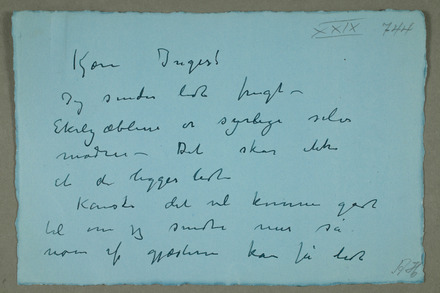 XXIX 744
Kære Inger!
Jeg sender lidt frugt –
Æblerne er syrlige selv
modne – Det skader ikke
at de ligger lidt
Kanske det vil komme godt
til om jeg sender mere så
nogen af gæsterne kan få lidt